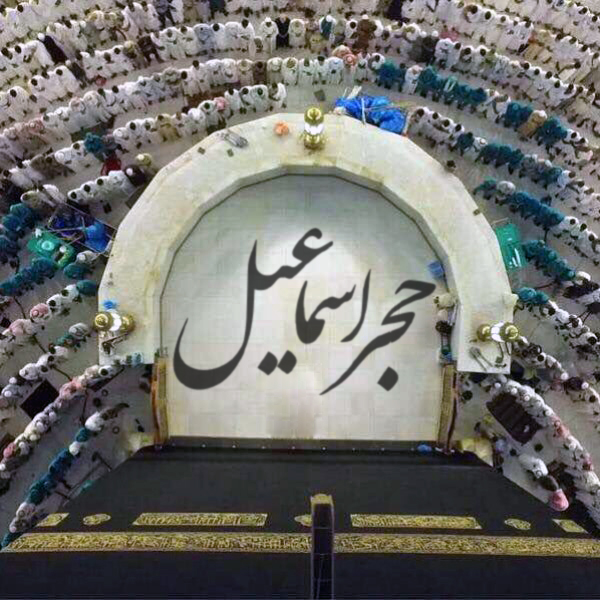 حجر اسماعیل